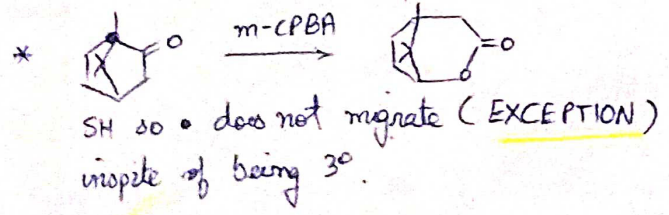 * m-CPBA
SH so • does not migrate (EXCEPTION)
inspite of being 3°.